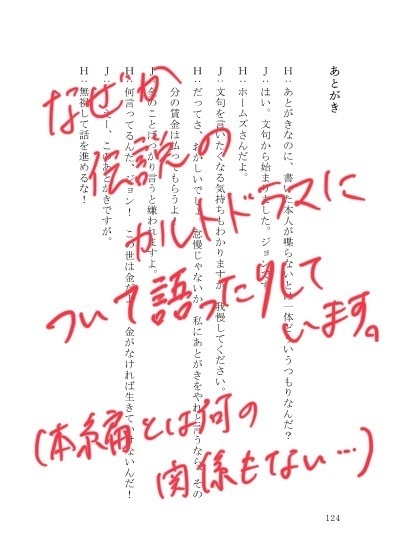 あとがき
H：あとがきなのに、書いた本人が喋らないとは一体どういうつもりなんだ？
J：はい。文句から始まりました。ジョンです。
H：ホームズさんだよ。
J：文句を言いたくなる気持ちもわかりますが、我慢してください。
H：だってさ、おかしいでしょ。怠慢じゃないか。私にあとがきをやれと言うなら、その
分の賃金は払ってもらうよ
J：金のことばっかり言うと嫌われますよ。
H：何言ってるんだ、ジョン！　この世は金だ　金がなければ生きていけないんだ！
J：えー、このあとがきですが。
H：無視して話を進めるな！
なぜか
伝説の
カルトドラマに
ついて語ったりして
います。
(本編とは何の
関係もない…)
124